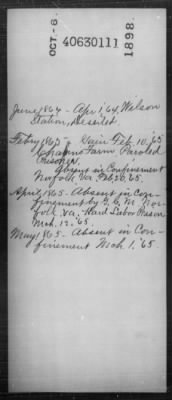 OCT.-6.
40630111
1898.
June 1864 - Apr 1, 64, Wilson
Station, Deserted.
Feb'y 1865 - Gain Feb. 10, 65
Farm Paroled
Prisoner,
Absent in Confinement
Norfolk Va. Feb 65.
April 1865 - Absent in Con-
finement by G.C.M. Nor-
folk Va. Hard Labor Prison
Mch. 12, '65.
May 1865 - Absent in Con-
finement Mch 1, '65.